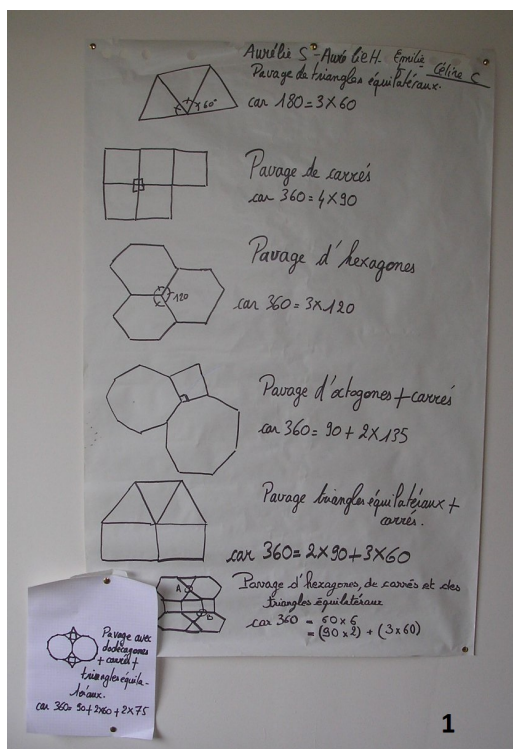 Aurélie S - Aurélie H. Emilie Céline C
Pavage de triangles équilatéraux.
60°
car 180=3X60
Pavage de carrés
car 360=4X90
Pavage d'hexagones
120
car 360=3X120
Pavage d'octogones+carrés
car 360= 90+2X135
Pavage triangles équilatéraux +
carrés.
car 360=2X90+3X60
A
B
Pavage d'hexagones, de carrés et des
triangles équilatéraux
car 360 = 60x6
= (90x2) + (3x60)
Pavage avec
dodécagones
+ carrés +
triangles équila-
téraux.
car 360= 90+2x60+2x75
1